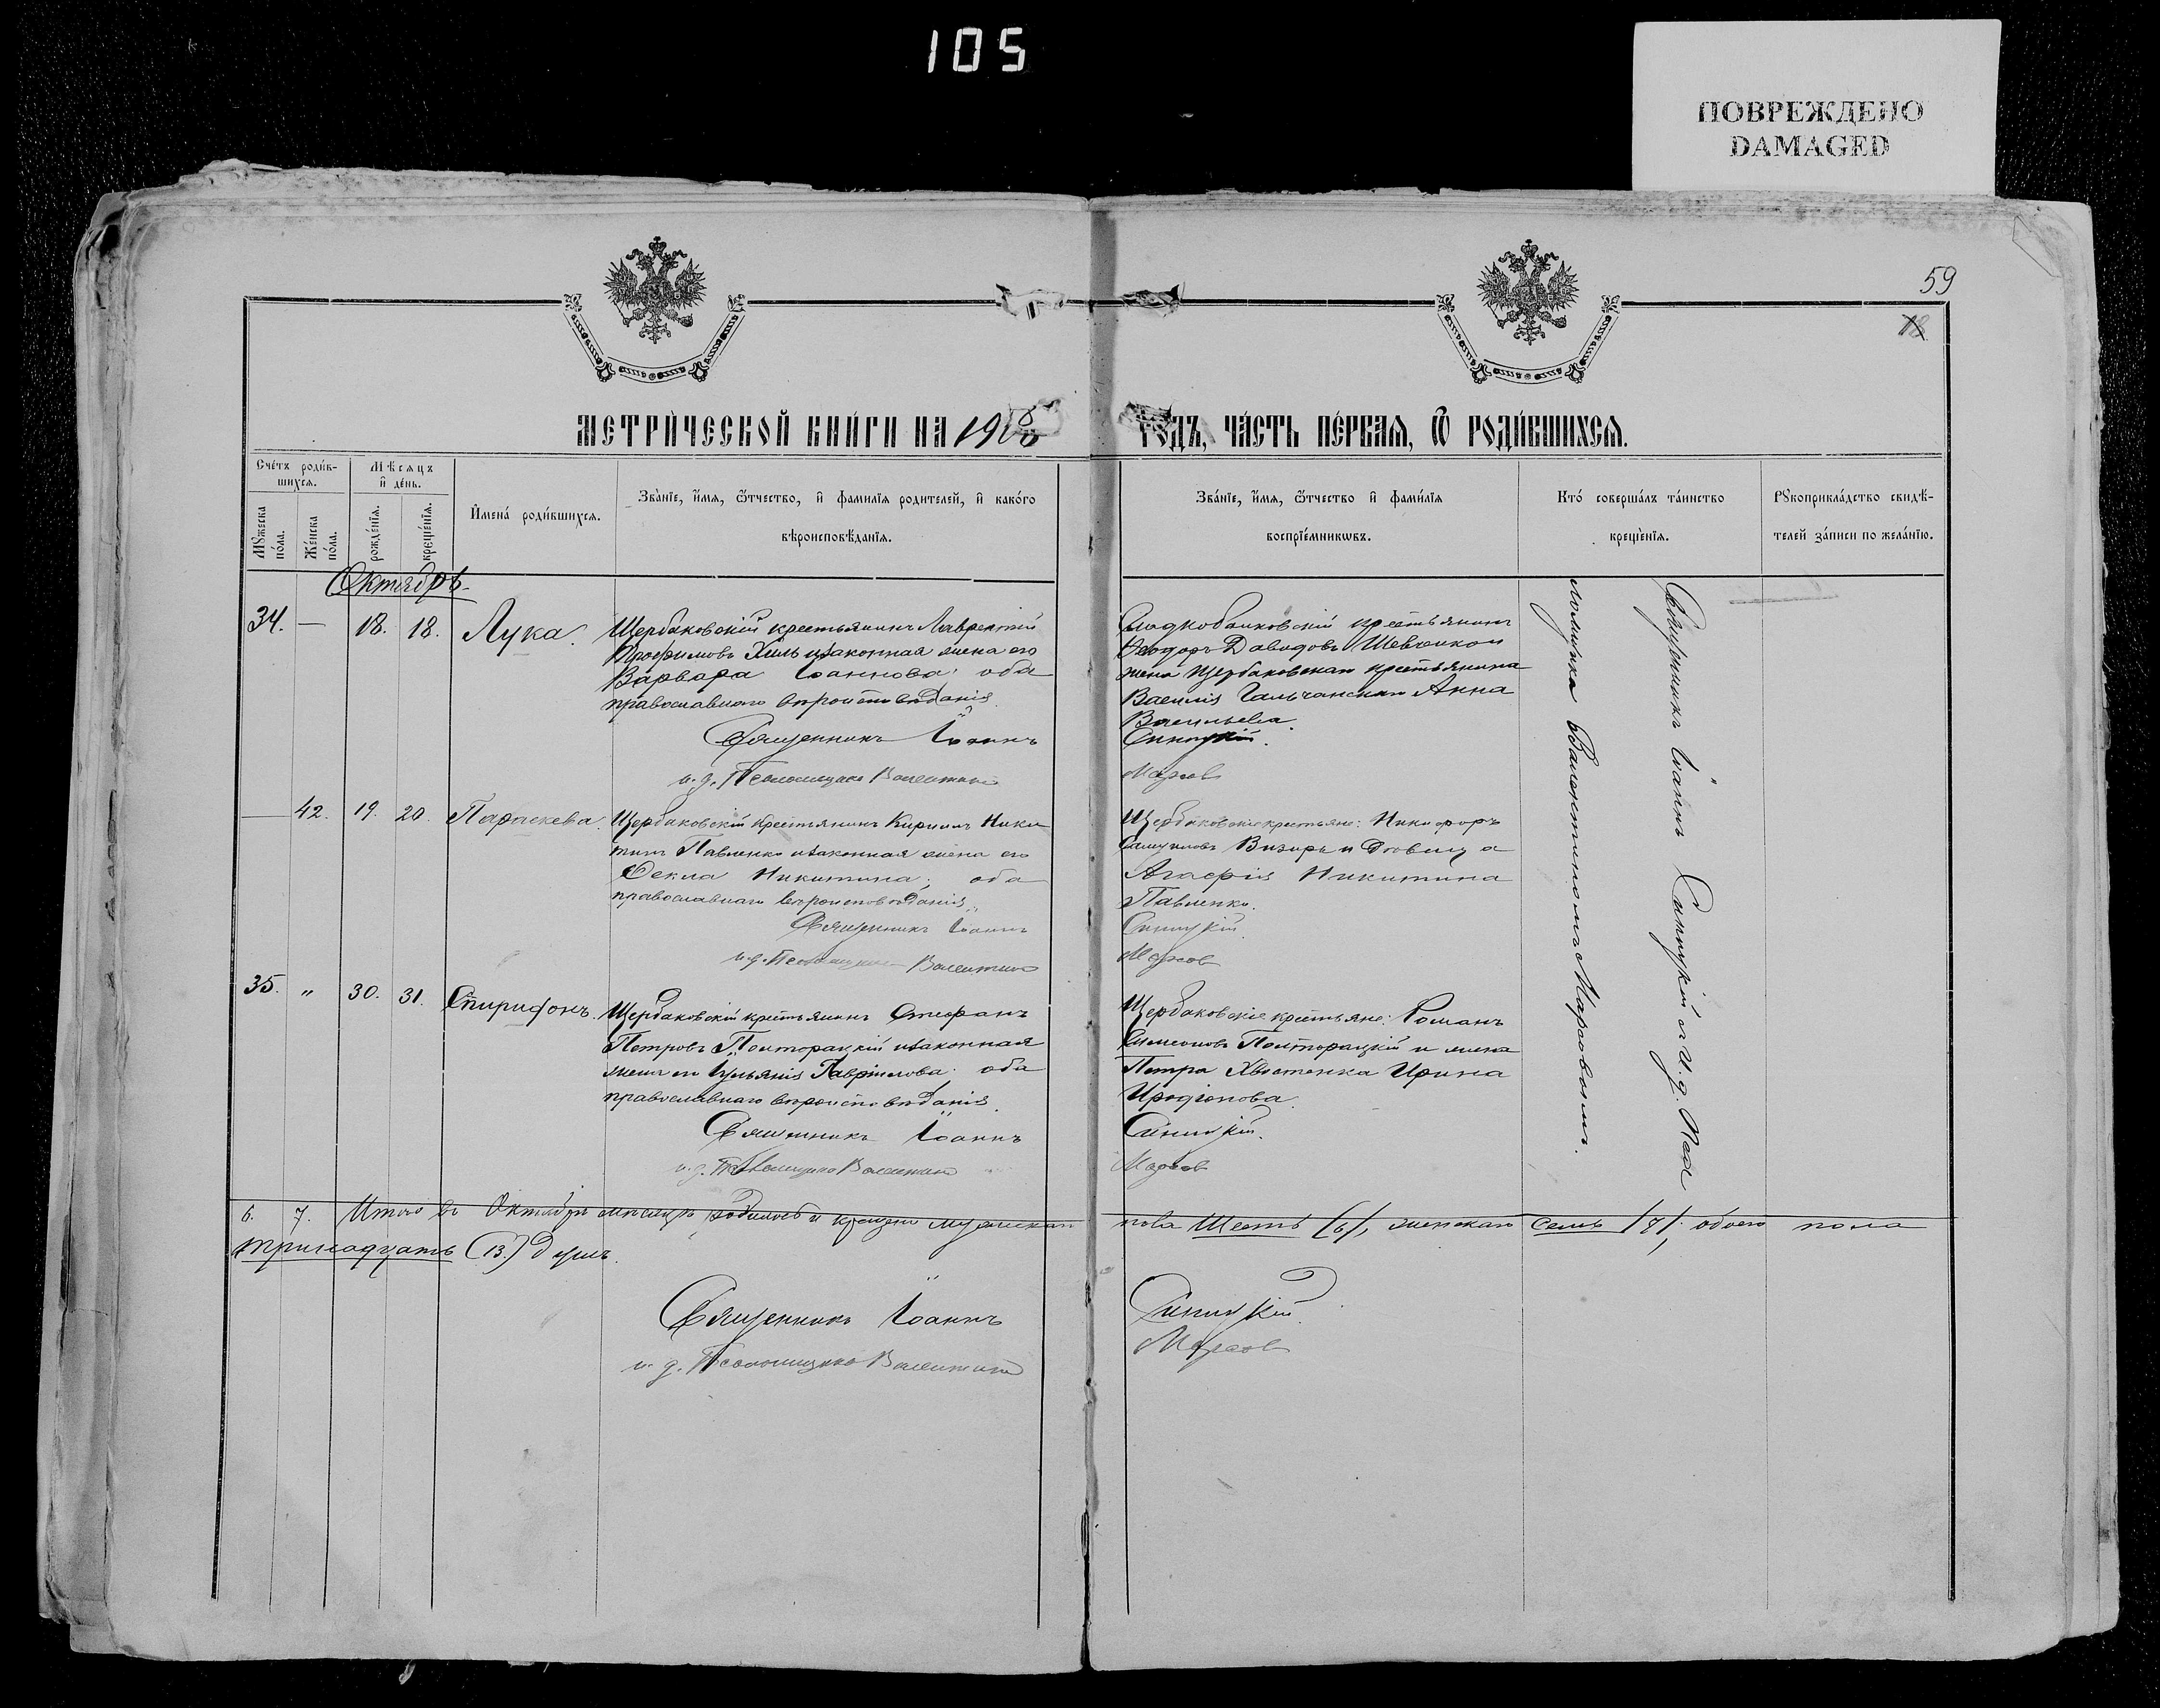 105
ПОВРЕЖДЕНО
DAMAGED
59
18
МЕТРИ́ЧЕСКОЙ КНИ́ГИ НА 1908
ГОДЪ, ЧА́СТЬ ПЕ́РВАѦ, Ѿ РОДИ́ВШИХСѦ.
Сче́тъ роди́в-
шихсѧ.
Мѣ́сѧцъ
и҆ де́нь.
Мꙋ́жеска
по́ла.
Же́нска
по́ла.
рожде́нїѧ.
креще́нїѧ.
И҆мена̀ роди́вшихсѧ.
Зва́нїе, и҆́мѧ, ѻ҆́тчество, и҆ фами́лїѧ роди́телей, и҆ како́го
вѣроисповѣ́данїѧ.
Зва́нїе, и҆́мѧ, ѻ҆́тчество и҆ фами́лїѧ
воспрїе́мникѡвъ.
Кто̀ соверша́лъ та́инство
креще́нїѧ.
Рꙋкоприкла́дство свидѣ́-
телей за́писи по жела́нїю.
Октябрь
34. — 18. 18. Лука.
Щербаковскій крестьянинъ Лаврентій
Трофимовъ Хиль и законная жена его
Варвара Іоаннова; оба
православнаго вѣроисповѣданія.
Священникъ Іоаннъ
и. д. Псаломщика Валентинъ
Сладкобалковскій крестьянинъ
Ѳеодоръ Давидовъ Шевченко и
жена Щербаковскаго крестьянина
Василія Гальчанскаго Анна
Васильева.
Синицкій.
Марков
— 42. 19. 20. Параскева.
Щербаковскій крестьянинъ Кириллъ Ники
тинъ Павленко и законная жена его
Ѳекла Никитина; оба
православнаго вѣроисповѣданія.
Священникъ Іоаннъ
и. д. Псаломщика Валентинъ
Щербаковскіе крестьяне: Никифоръ
Самуиловъ Визирь и дѣвица
Агафія Никитина
Павленко.
Синицкій
Марков
35. " 30. 31. Спиридонъ.
Щербаковскій крестьянинъ Стефанъ
Петровъ Полторацкій и законная
жена его Іуліанія Гавріилова; оба
православнаго вѣроисповѣданія.
Священникъ Іоаннъ
и. д. Псаломщика Валентинъ
Щербаковскіе крестьяне: Романъ
Симеоновъ Полторацкій и жена
Петра Хвостенка Ирина
Иродіонова.
Синицкій.
Марков
Священникъ Іоаннъ Синицкій съ И. д. Псал
ломщика Валентиномъ Марковымъ.
6. 7. Итого въ Октябрѣ мѣсяцѣ родилось и крещено мужескаго
пола Шесть /6/, женскаго Семь /7/, обоего пола
тринадцать (13.) душъ.
Священникъ Іоаннъ
и. д. Псаломщика Валентинъ
Синицкій.
Марков